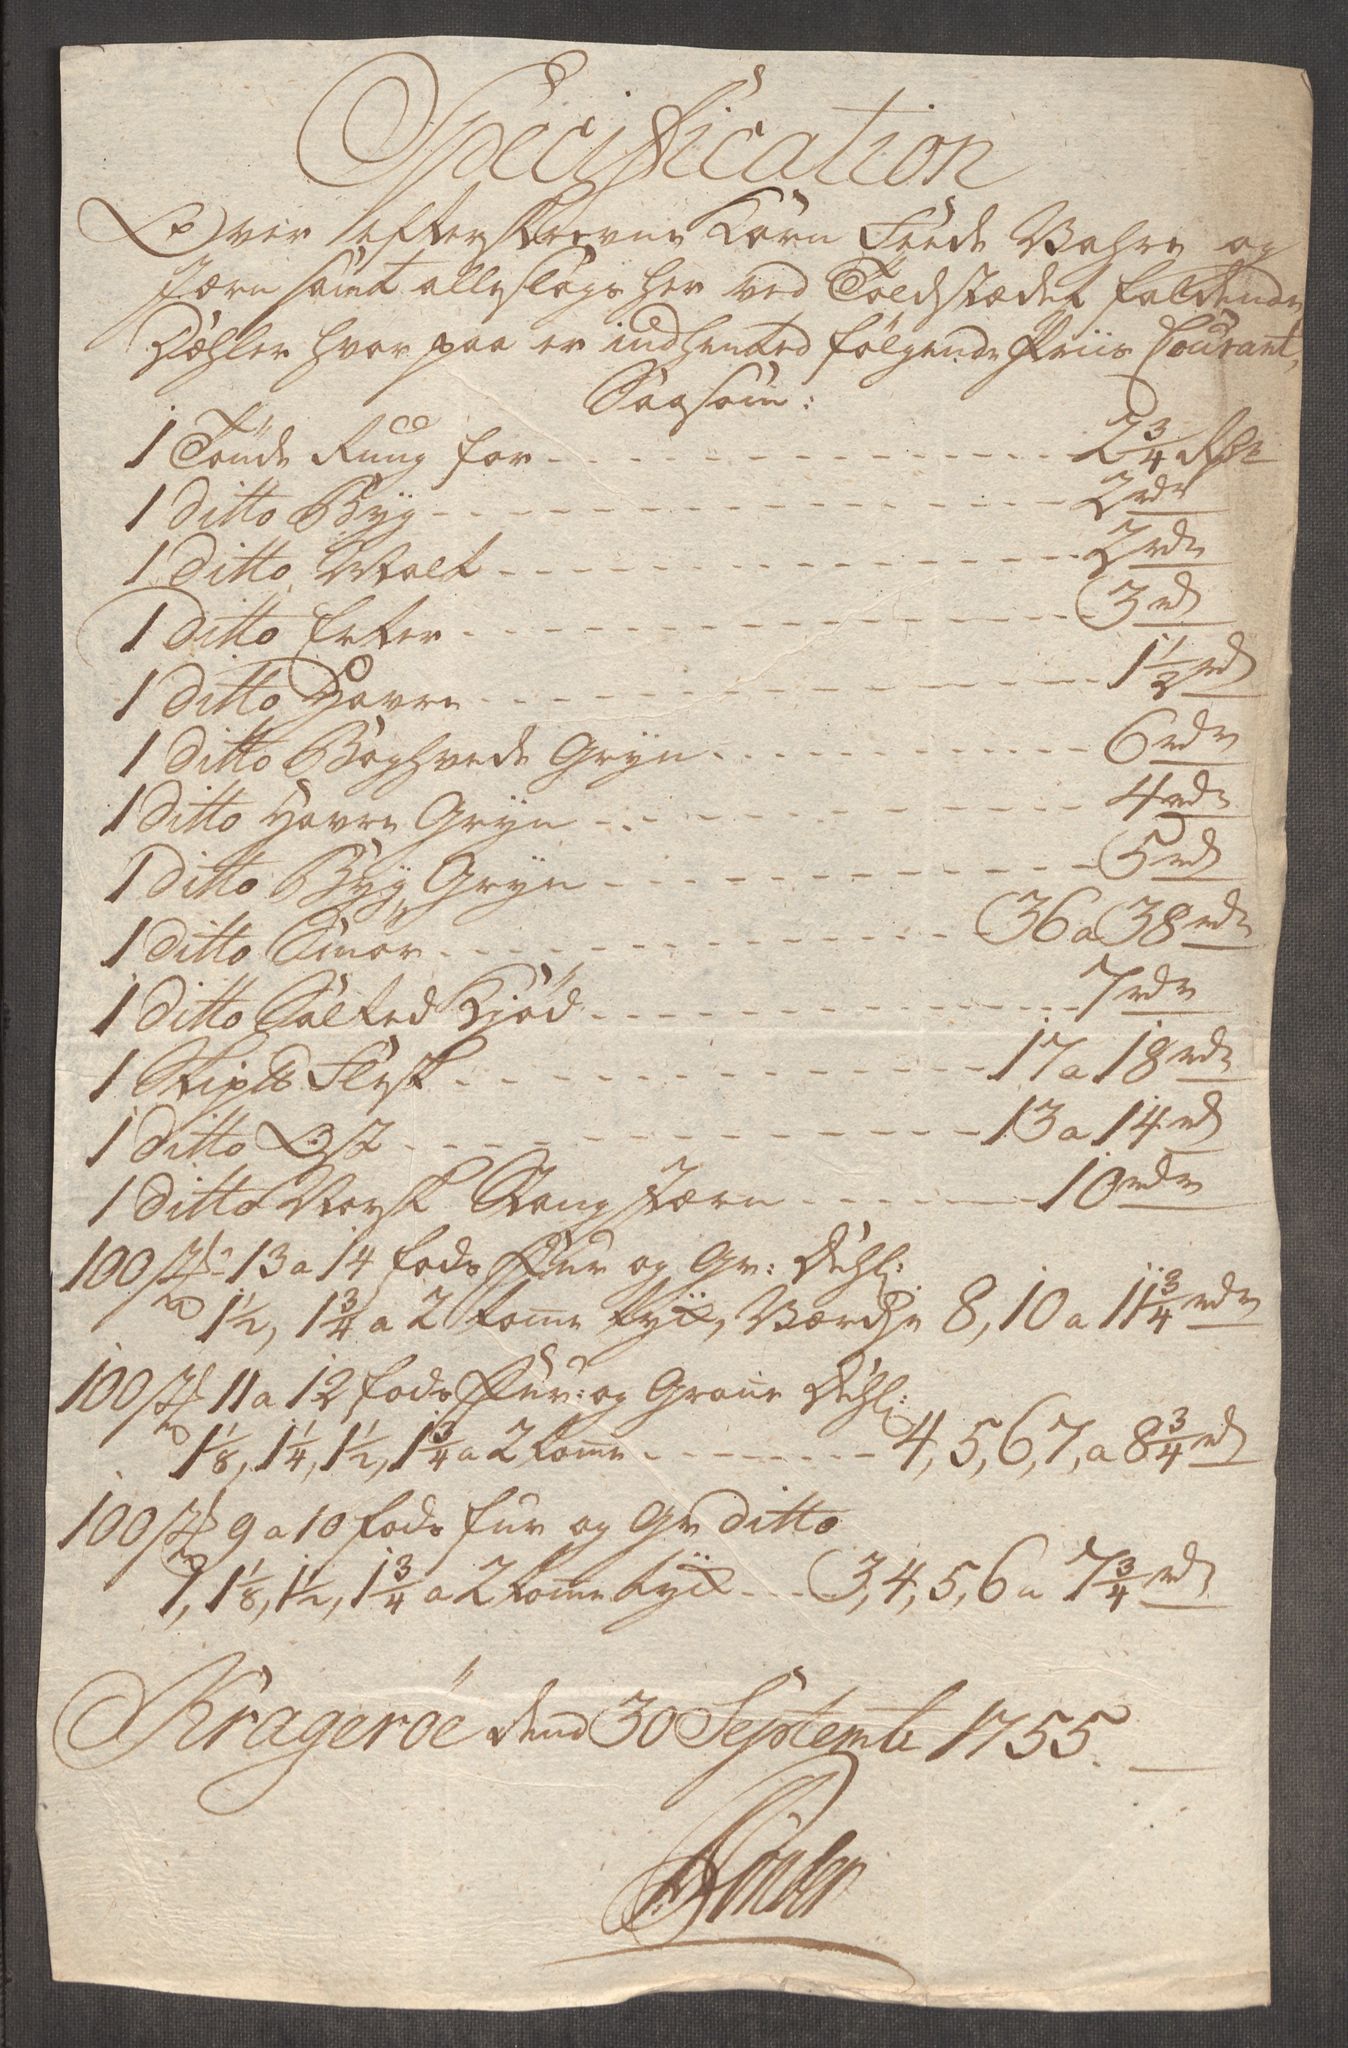 Specification
Over efterskrevne Korn Feede Vahre og
Jærn samt alleslags her ved Toldstædet faldende
Dæhler hvor paa er indhented følgende Priis Courant,
Saasom:
1 Tönde Rug for - - - 2 3/4 Rdr
1 ditto Byg - - - 2 rdr
1 ditto Malt - - - 2 rdr
1 ditto Erter - - - 3 rd
1 ditto Havre - - - 1 1/2 rd
1 ditto Boghvede Gryn - - - 6 rdr
1 ditto Havre Gryn - - - 4 rdr
1 ditto Byg Gryn - - - 5 rd
1 ditto Smör - - - 36 a 38 rdr
1 ditto Salted Kjöd - - - 7 rdr
1 Skip℔ Flesk - - - 17 a 18 rdr
1 ditto Ost - - - 13 a 14 rd
1 ditto Norsk Stang Jærn - - - 10 rdr
100 st 13 a 14 fods Fur og Gr: Dehl:
1 1/2, 1 3/4 a 2 tome tyk, Værdie 8, 10 a 11 3/4 rdr
100 st 11 a 12 fods Fur: og Grane Dehl:
1 1/8, 1 1/4, 1 1/2, 1 3/4 a 2 tome - - - 4, 5, 6, 7, a 8 3/4 rd
100 st 9 a 10 fods fur og Gr ditto
1, 1 1/8, 1 1/2, 1 3/4 a 2 tome tyk - - - 3, 4, 5, 6 a 7 3/4 rd
Kragerøe dend 30 Septembr 1755.